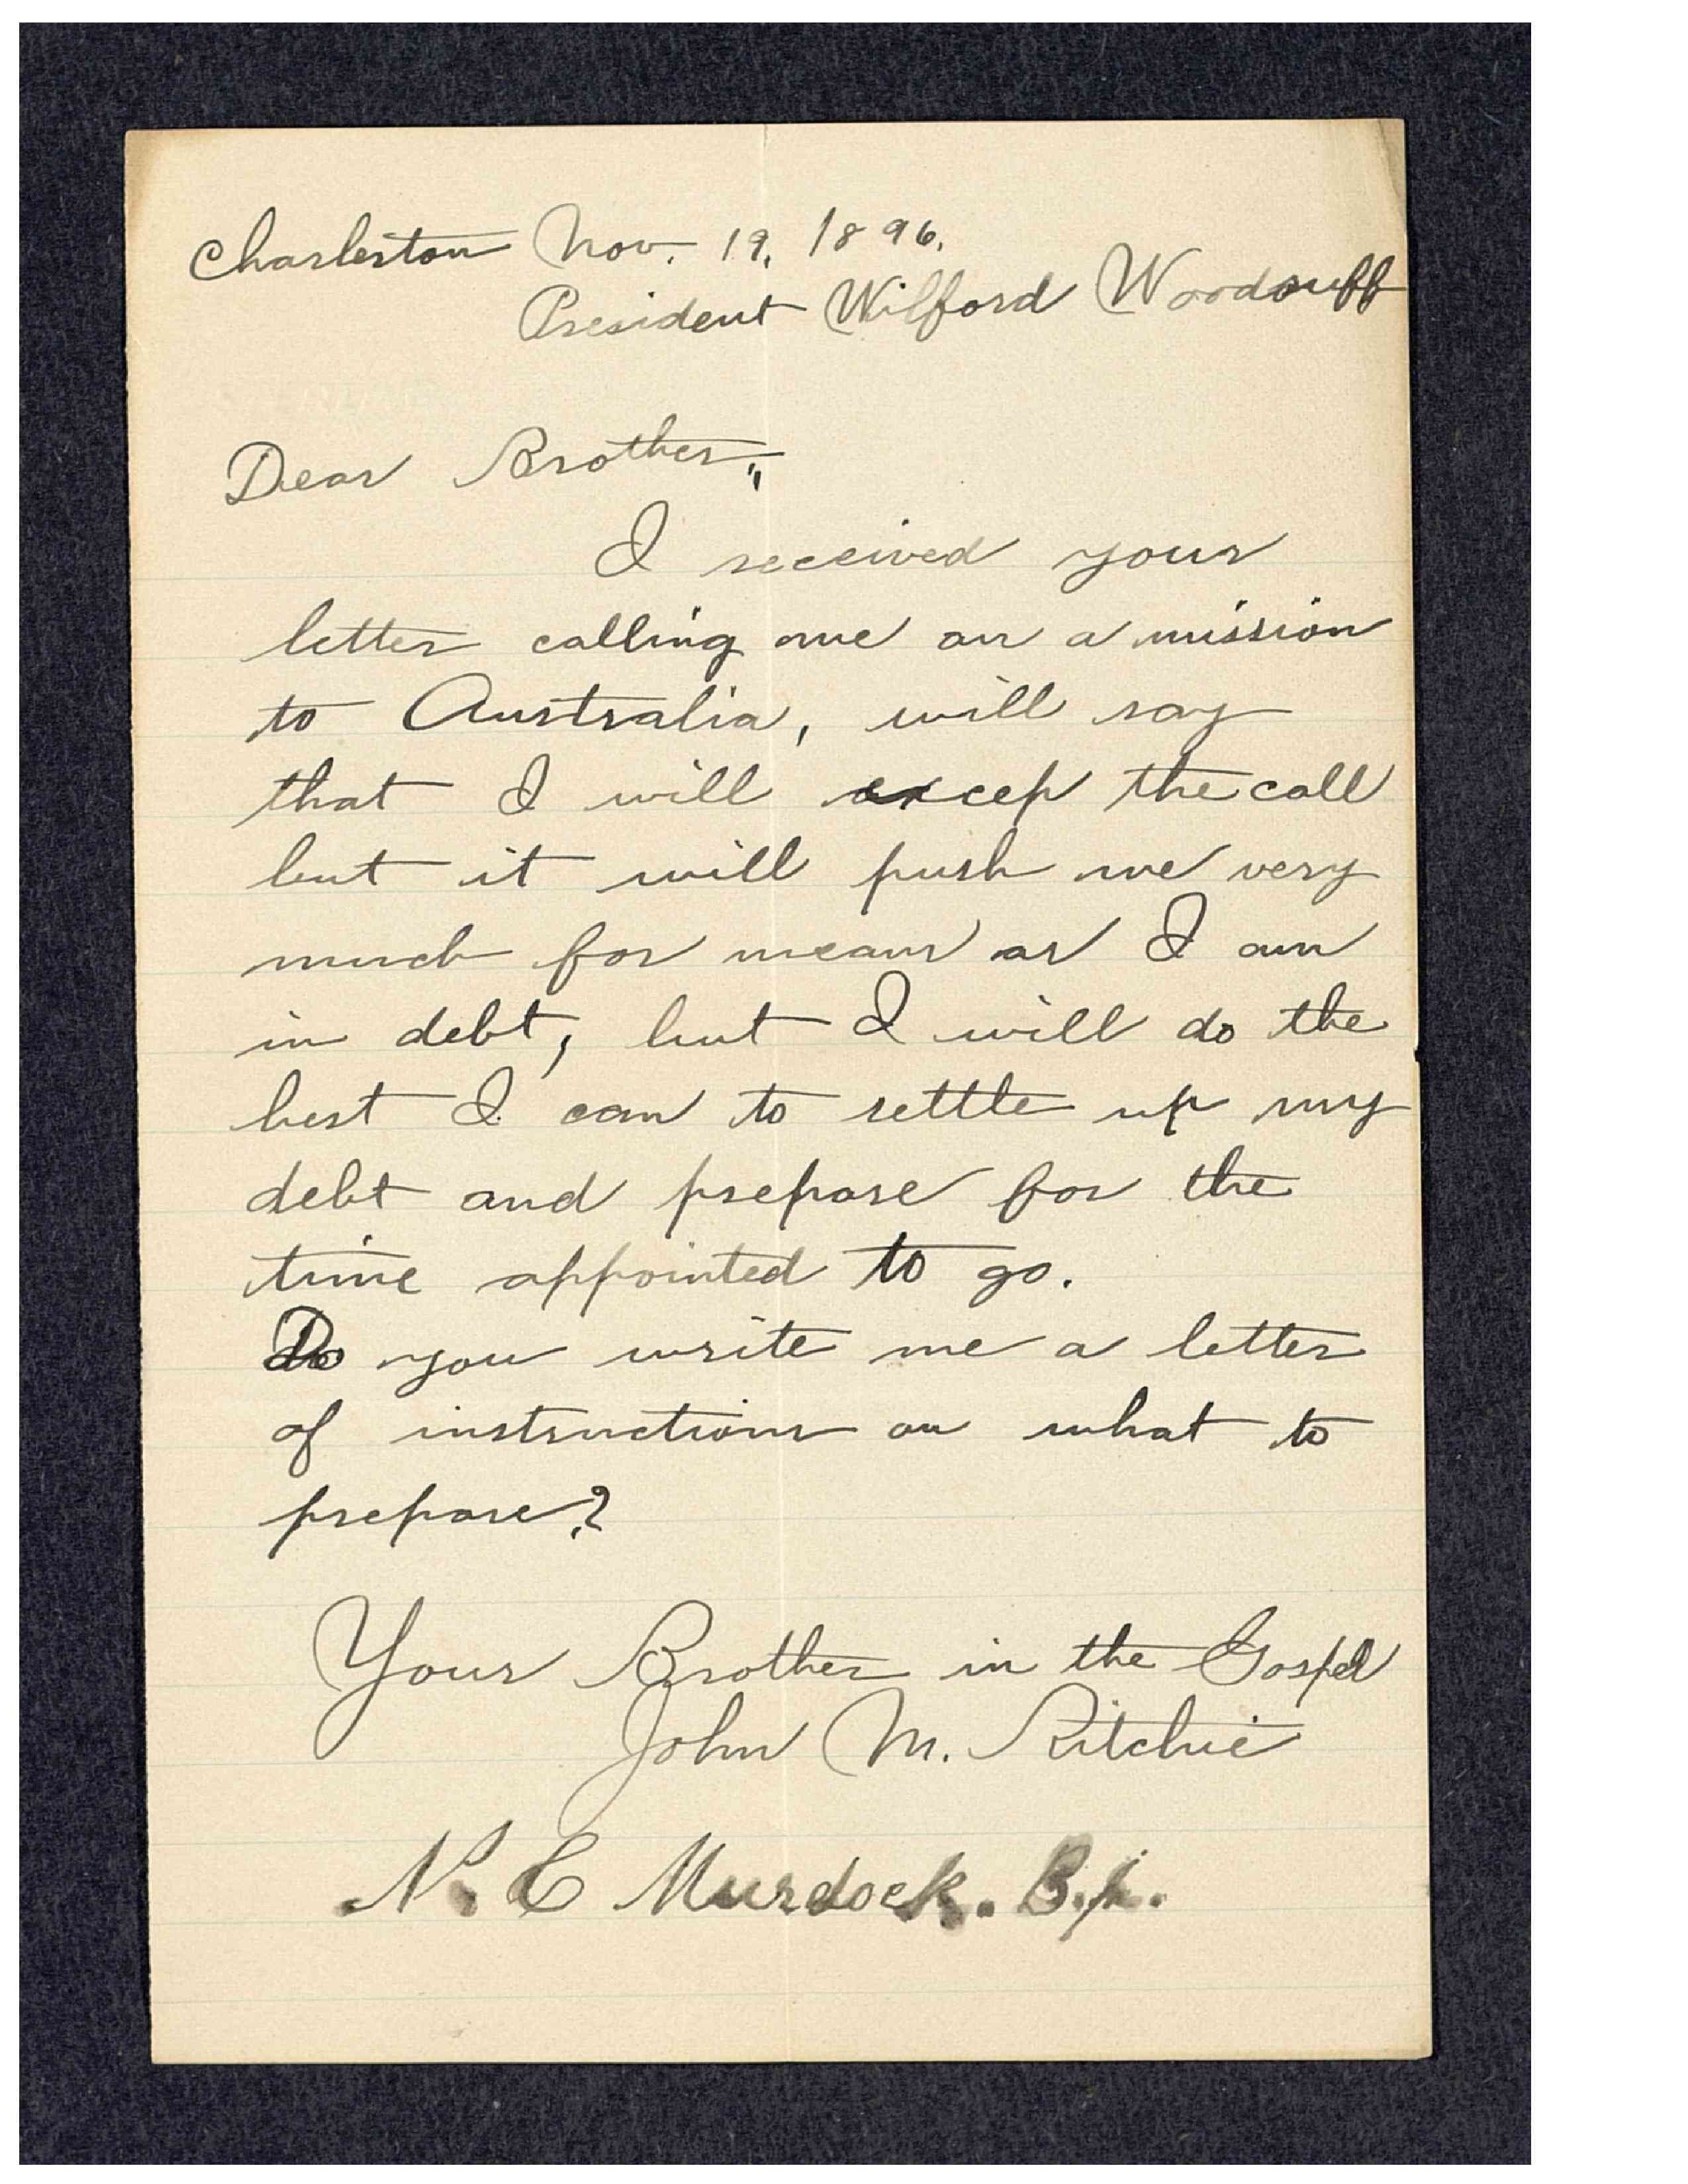 Charleston Nov. 19, 1896.
President Wilford Woodruff
Dear Brother,,
I received your
letter calling me on a mission
to Australia, will say
that I will excep the call
but it will push me very
much for means as I am
in debt, but I will do the
best I can to settle up my
debt and prepare for the
time appointed to go.
Do you write me a letter
of instructions on what to
prepare?
Your Brother in the Gospel
John M. Ritchie
N. C Murdock. Bp.